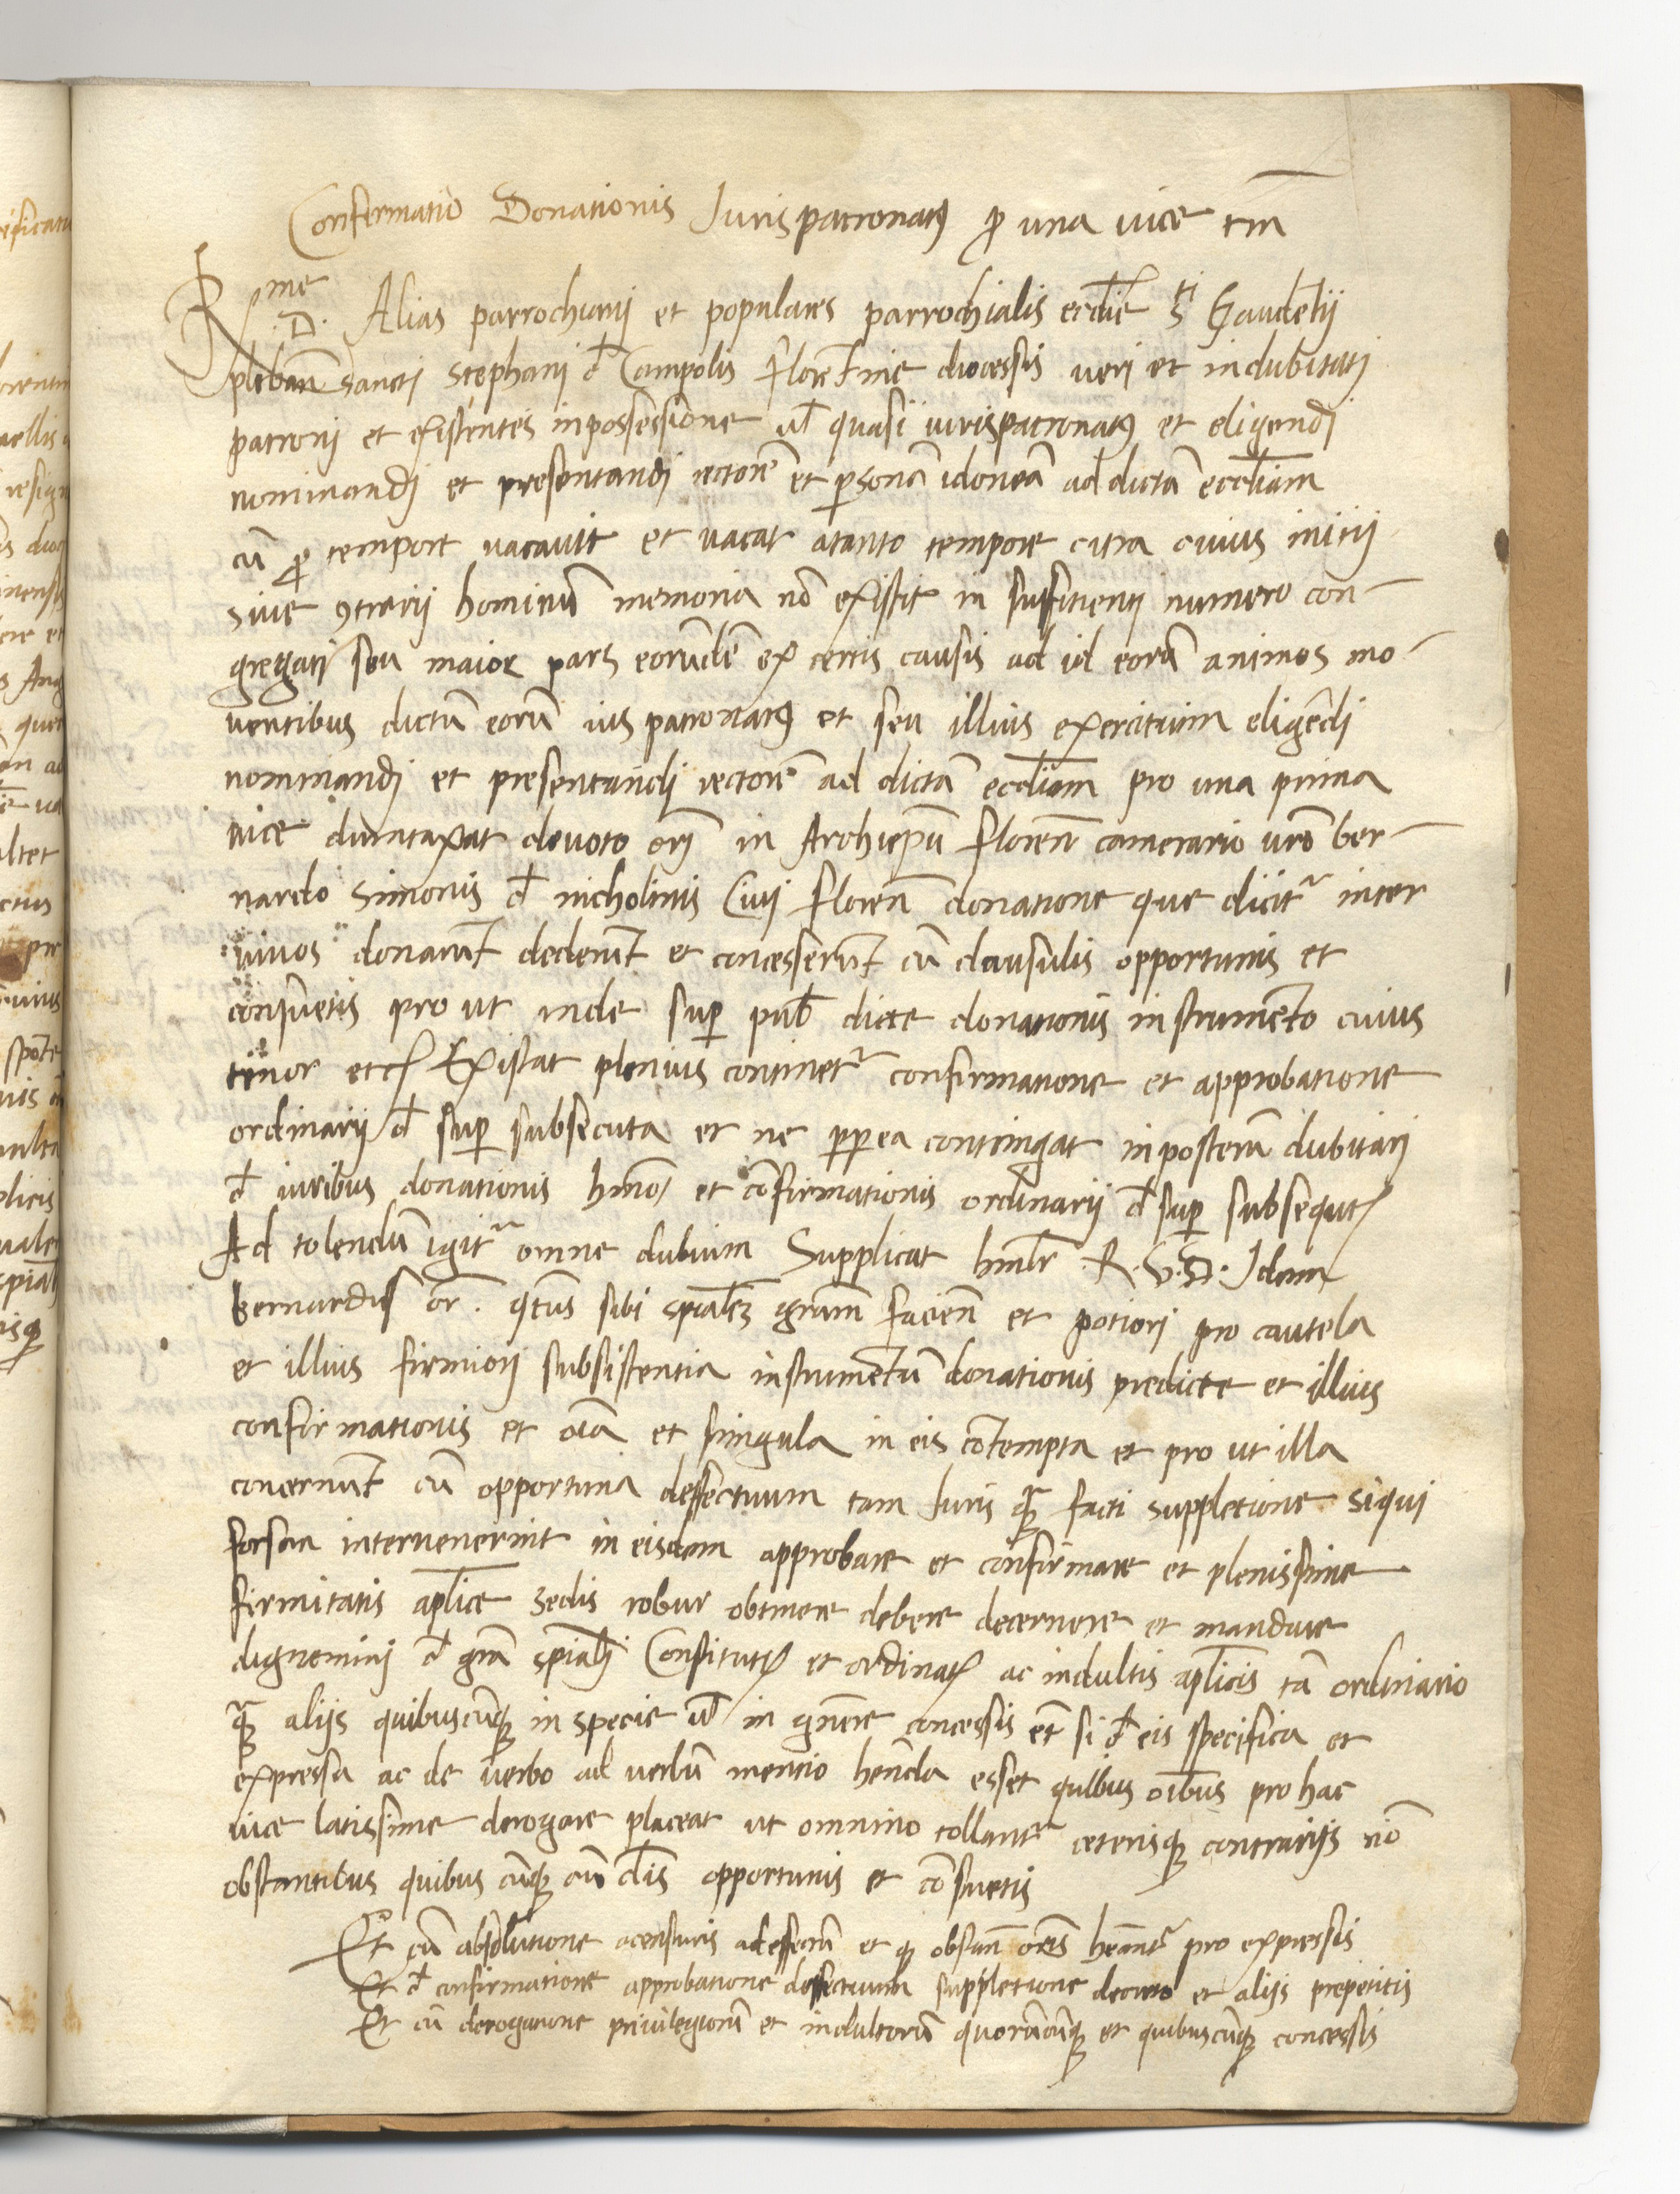 Confirmatio Donationis Jurispatronatus p una vice tm
Rme D. Alias parrochianj et populares parrochialis ecclie Sti Gaudetij
plebanatus sanctj stephanj d Campolis Florentine diocessis verj et indubitatj
patronj et existentes in possessione vl quasi iurispatronatus et eligendj
nominandj et presentandj rectore et psona idonea ad dicta eccliam
cu p tempore vacauit et vacat atanto tempore citra cuius initij
siue 9trarij hominu memoria no existit in sufficientj numero con-
gregatj seu maior pars eorunde ex certis causis ad id eoru animos mo-
ventibus dictu eoru ius patronatus et seu illius exercitium eligedi
nominandj et presentandi rectore ad dicta eccliam pro una prima
vice dumtaxat deuoto orj in Archiepu Floren camerario vro ber-
nardo simonis d nicholinis Civj Floren donatione que dicitr inter
vivos donarut dederut et concesserut cu clausulis opportunis et
consuetis pro ut inde sup pub dicte donationis instrumeto cuius
tenor etc Existat plenius continetr confirmatione et approbatione
ordinarij d sup subsecuta et ne ppea contingat inposteru dubitarj
d iuribus donationis hmoj et cofirmationis ordinarij d sup subsequt
Ad tolendu igitr omne dubium Supplicat humlr .R.V.D. Idem
bernardus or. qtus sibi spialez gram facien et potiorj pro cautela
et illius firmiorj subsistentia instrumetu donationis predicte et illius
confirmationis et oia et singula in eis cotempta et pro ut illa
concernut cu opportuna deffectuum tam Juris qua facti suppletione siqui
forsan intervenerint in eisdem approbare et confirmare et plenissime
firmitatis aplice sedis robur obtinere debere decernere et mandare
dignemini d gra spialj Constitut et ordinat ac indultis aplicis ta ordinario
qua alijs quibuscuque in specie vl in gnere concessis et si d eis specifica et
expressa ac de verbo ad verbu mentio henda esset quibus oibus pro hac
vice latissime derogare placeat ut omnino tollantr ceterisque contrarijs no
obstantibus quibus cuque cu clis opportunis et cosuetis
Et cu absolutione acensuris ad effectu et que obstan ores heantr pro expressis
Et d confirmatione approbatione deffectuum suppletione decreto et alijs prepetitis
Et cu derogatione privilegioru et indultoru quorucuque et quibuscuque concessis